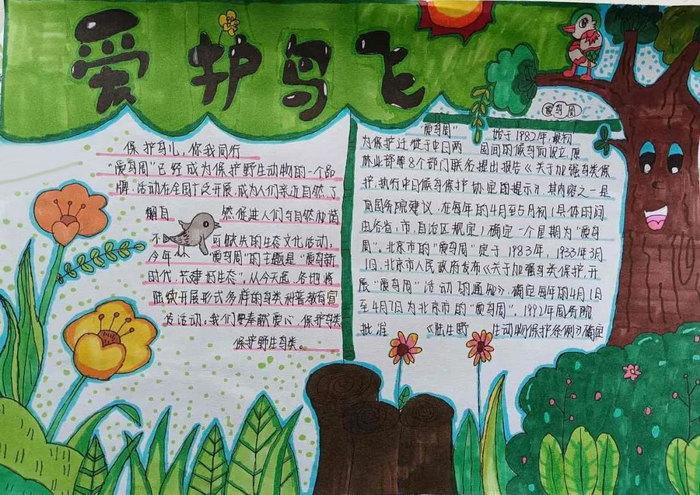 爱护鸟飞
保护鸟儿，你我同行
"爱鸟周"已经成为保护野生动物的一个品
牌"活动在全国广泛开展，成为人们亲近自然了
不 可缺失的生态文化活动，
今年 "爱鸟周"的主题是"爱鸟新
时代，共建好生态"，从今天起，各地将
陆续开展形式多样的鸟类科普教育宣
传活动，我们要奉献爱心，保护鸟类
保护野生鸟类。
爱鸟周
"爱鸟周" 始于1982年，最初
为保护迁徙于中日两 国间的候鸟而设立，原
林业部等8个部门联名提出报告《关于加强鸟类保
护，执行中日候鸟保护协定的提示》，其内容之一是
国务院建议，在每年的4月至5月初（具体时间
由各省，市，自治区规定）确定一个星期为"爱鸟
周"。北京市的"爱鸟周"定于1983年，1933年3月
1日，北京市人民政府发布《关于加强鸟类保护，开
展"爱鸟周"活动的通知》，确定每年的4月1日
至4月7日为北京市的"爱鸟周"，1992年国务院
批准 《陆生野 生动物保护条例》确定